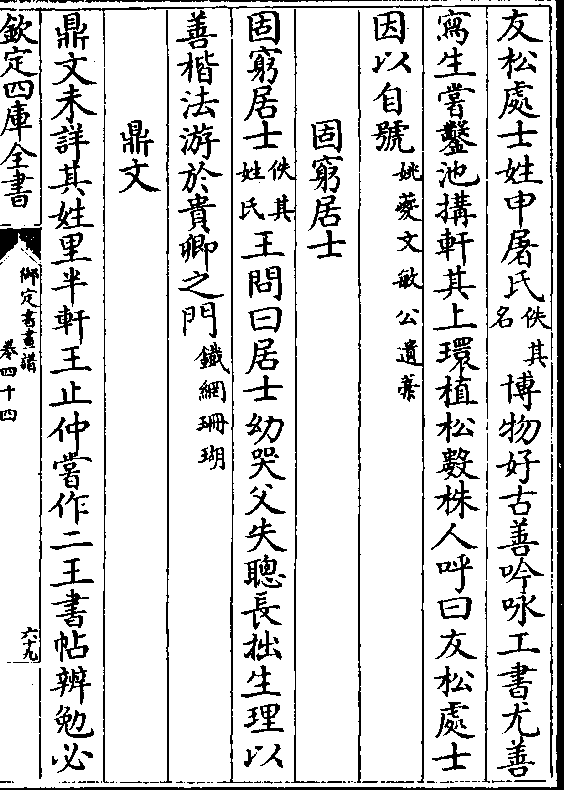 友松處士姓申屠氏佚其名博物好古善吟咏工書尤善
寫生嘗鑿池搆軒其上環植松數株人呼曰友松處士
因以自號姚夔文敏公遺藳
固窮居士
固窮居士佚其姓氏王問曰居士幼哭父失聰長拙生理以
善楷法游於貴卿之門鐵網珊瑚
鼎文
鼎文未詳其姓里半軒王止仲嘗作二王書帖辨勉必
欽定四庫全書
御定書畫譜
卷四十四
六十九